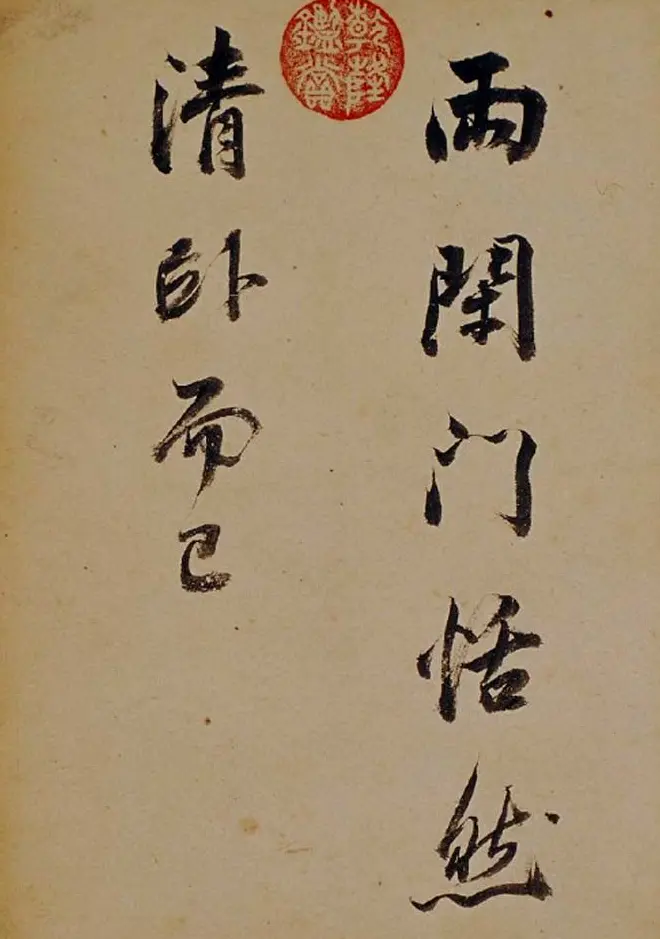 雨閑门恬然
清卧而已
乾隆鑑賞